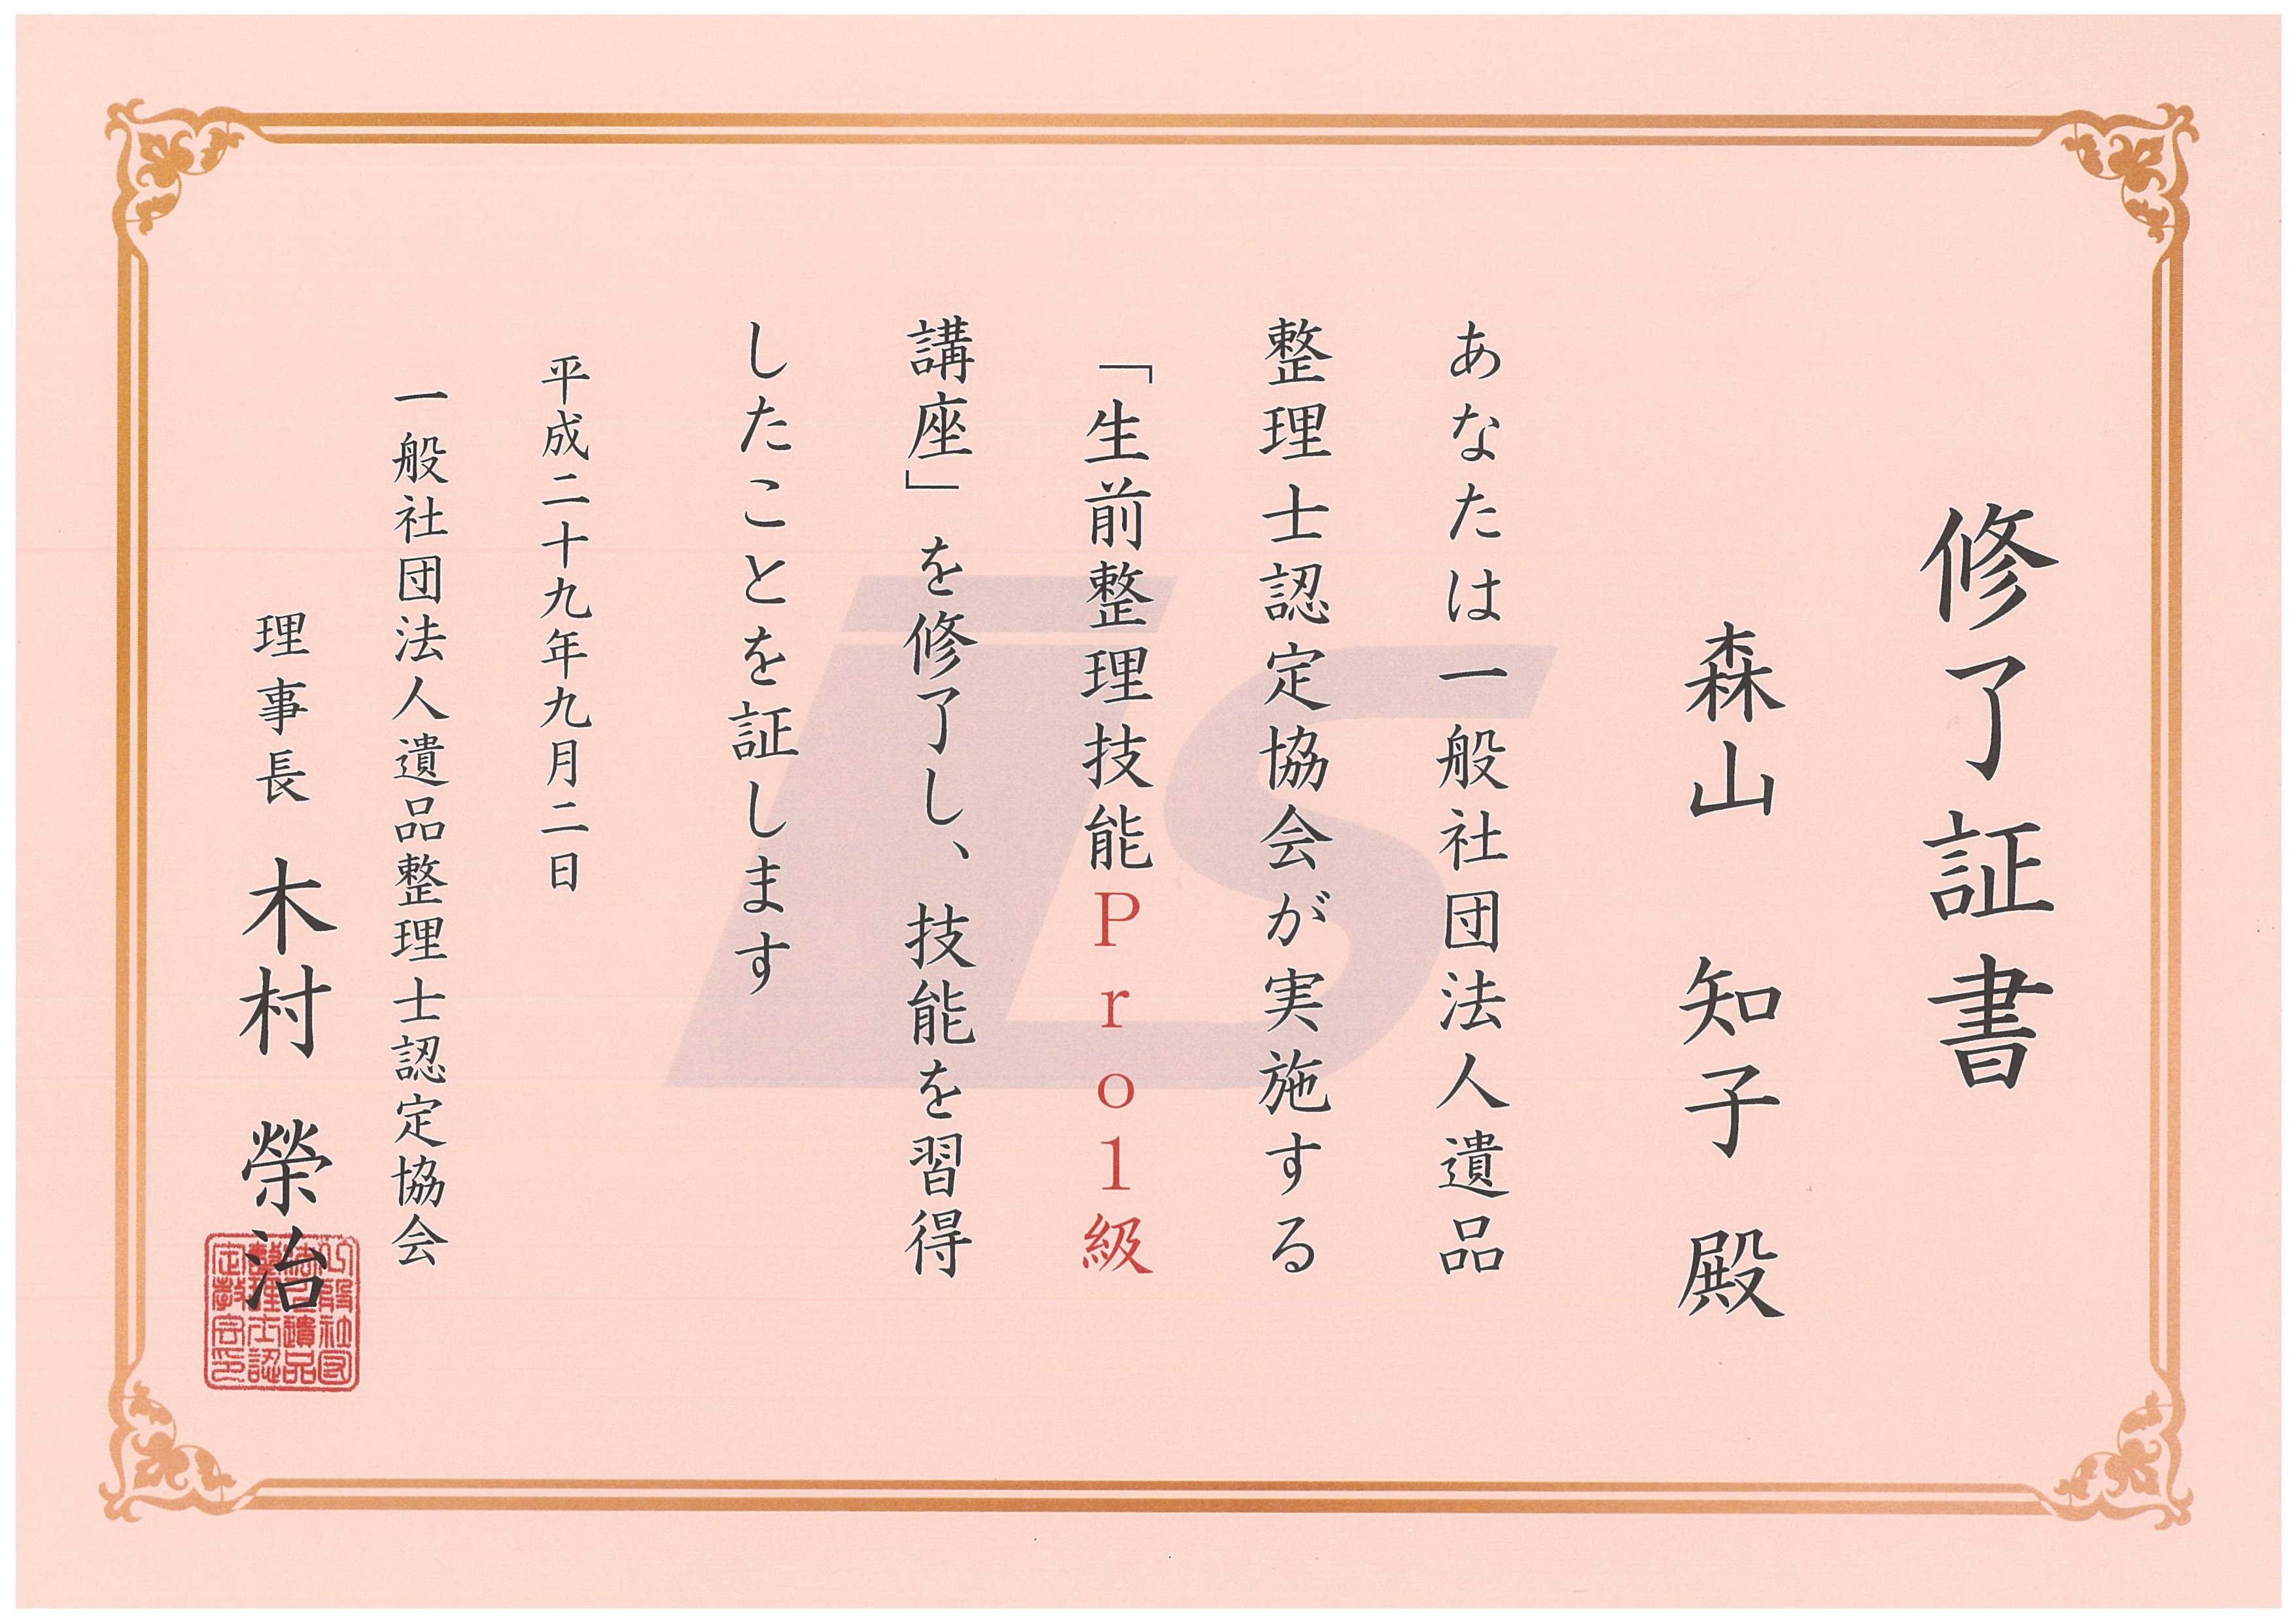 修了証書
森山 知子 殿
あなたは一般社団法人遺品
整理士認定協会が実施する
「生前整理技能Pro1級
講座」を修了し、技能を習得
したことを証します
平成二十九年九月二日
一般社団法人遺品整理士認定協会
理事長 木村 榮治